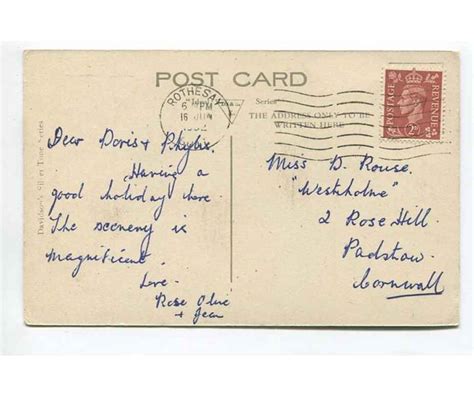 POST CARD
ROTHESAY
6 PM
16 JUN
Series
THE ADDRESS ONLY TO BE
WRITTEN HERE
POSTAGE
REVENUE
2D
Dear Doris & Phyllis,
Having a
good holiday here
The scenery is
magnificent.
Love.
Rose Olive
+ Jean
Miss D. Rouse.
"Westholme"
2 Rose Hill.
Padstow.
Cornwall